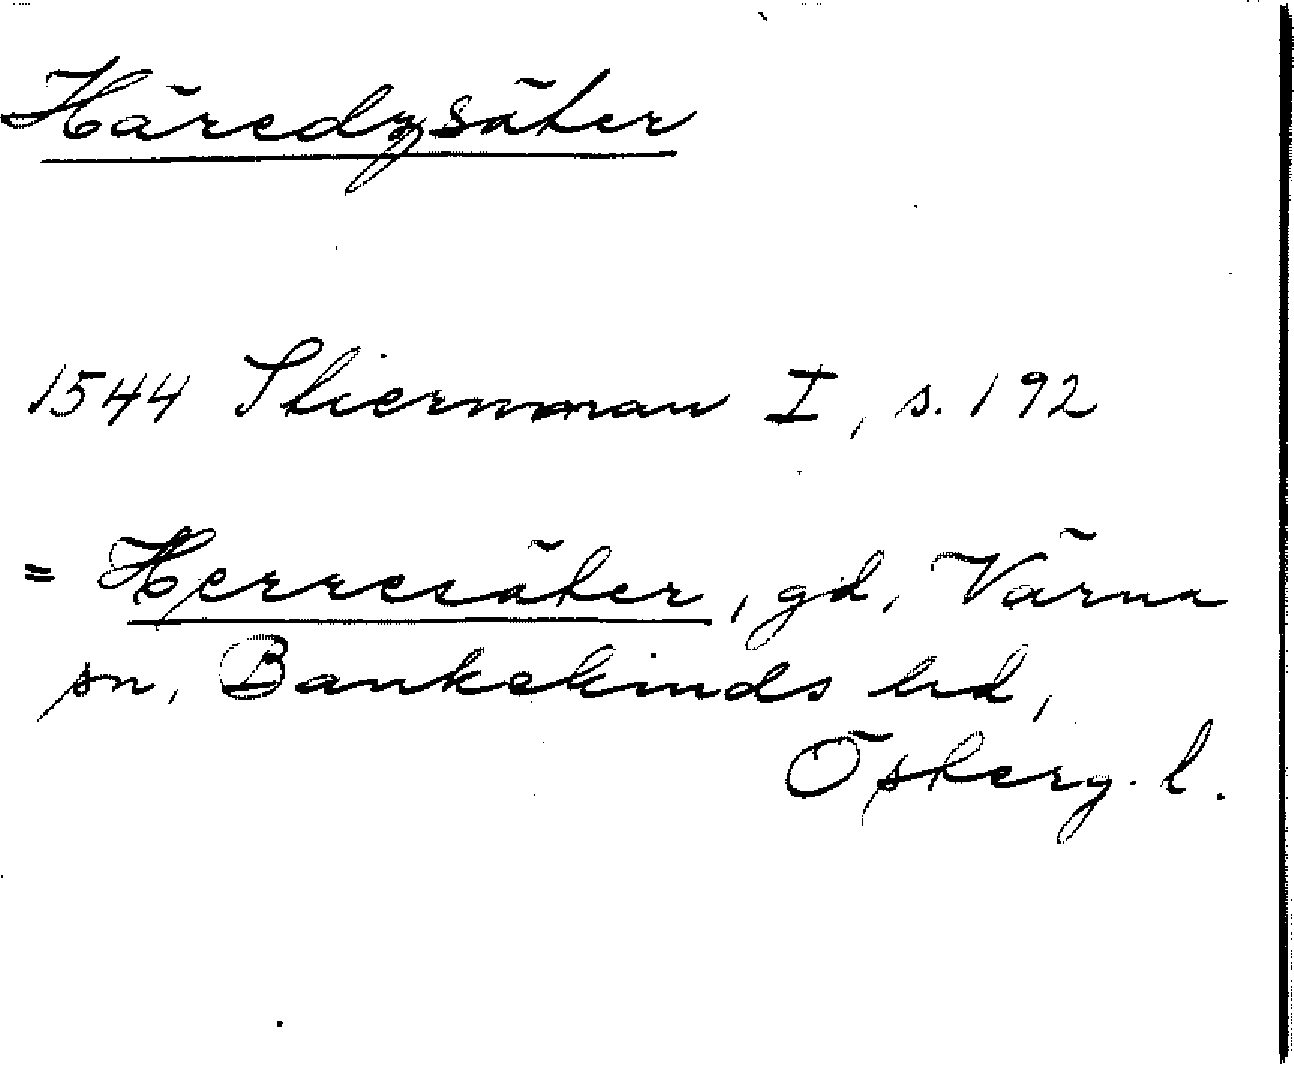 Häredzsäter
1544 Stiernman I, s. 192
= Herresäter, gd, Värna
sn, Bankekinds hd,
Österg. l.